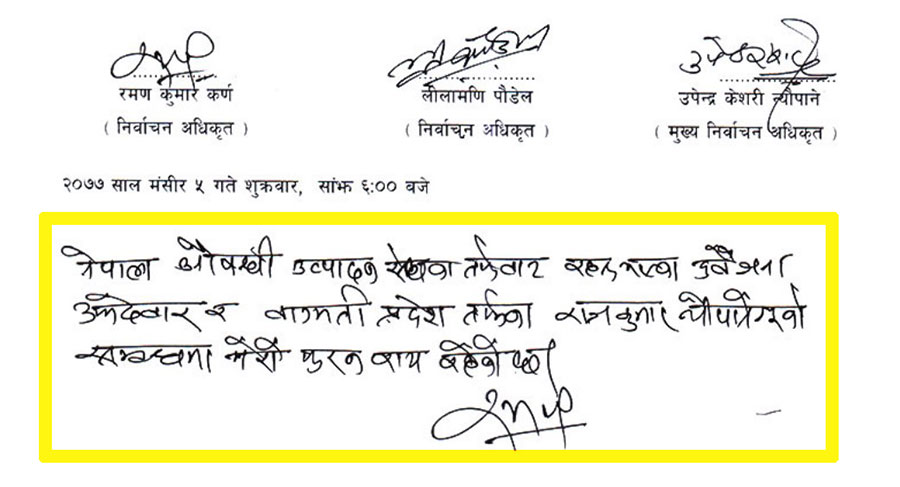 रमण कुमार कर्ण लीलामणि पौडेल उपेन्द्र केशरी न्यौपाने
( निर्वाचन अधिकृत ) ( निर्वाचन अधिकृत ) ( मुख्य निर्वाचन अधिकृत )
२०७७ साल मंसीर ५ गते शुक्रवार, सांझ ६:०० बजे
नेपाल औषधी उत्पादक तर्फबाट दुवै जना
उम्मेदवार र बागमती प्रदेश तर्फका राजकुमार
सम्बन्धमा मेरो फरक राय रहेको छ।